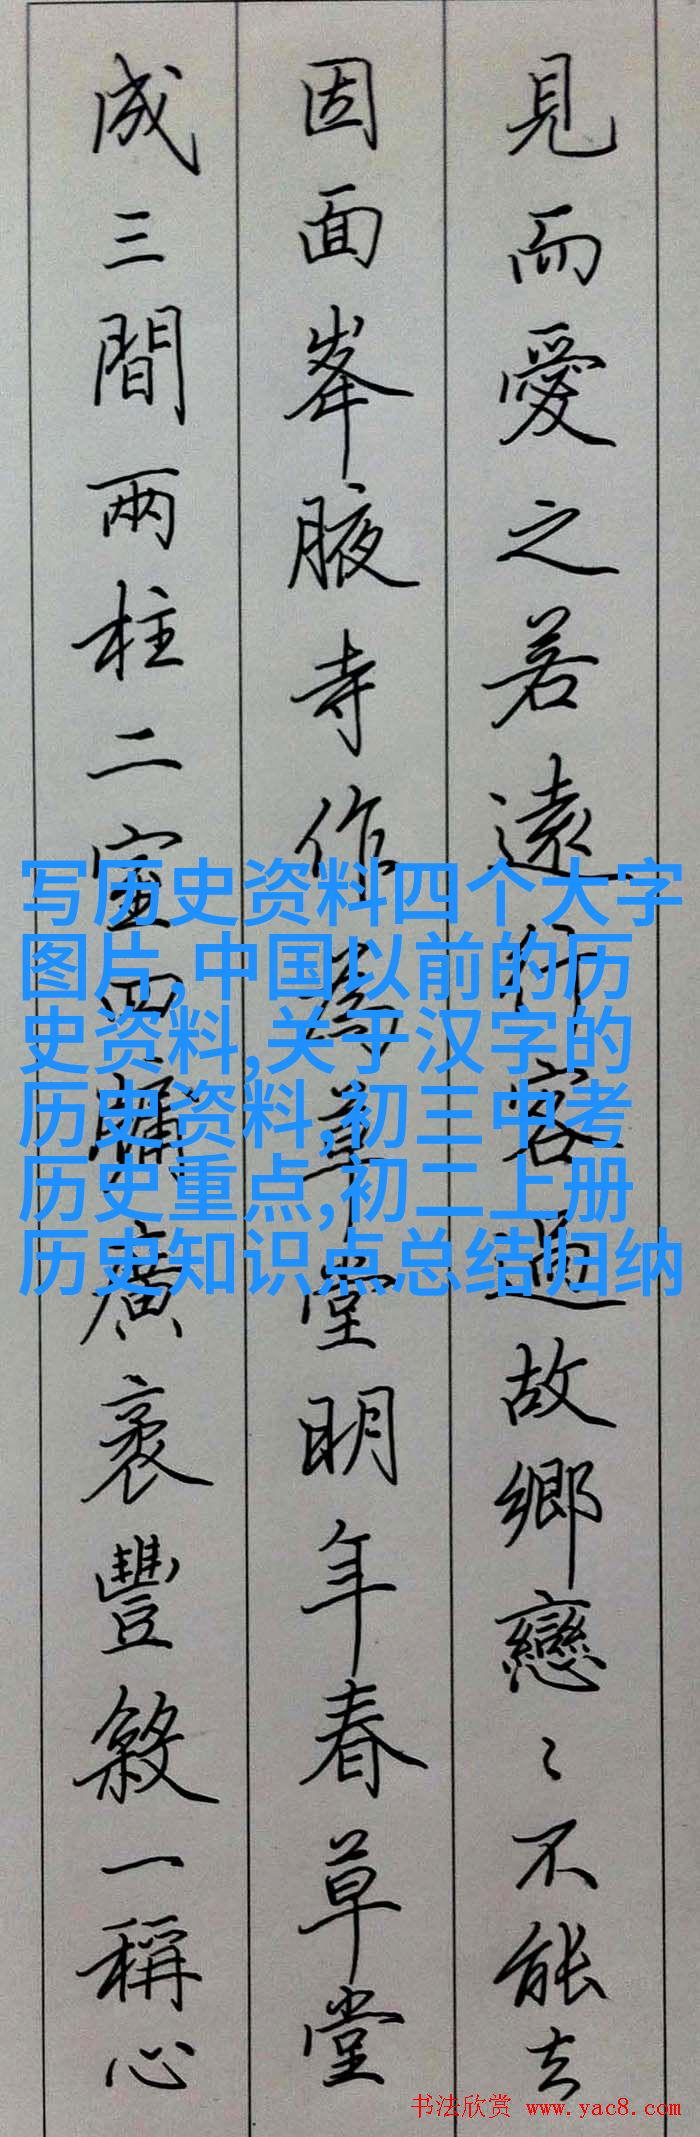 見而愛之若遠行客過故鄉戀〻不能去
因面峯腋寺作為草堂明年春草堂
成三間兩柱二室四牖廣袤豐殺一稱心
写历史资料四个大字
图片,中国以前的历
史资料,关于汉字的
历史资料,初三中考
历史重点,初二上册
历史知识点总结归纳
书法欣赏 www.yac8.com